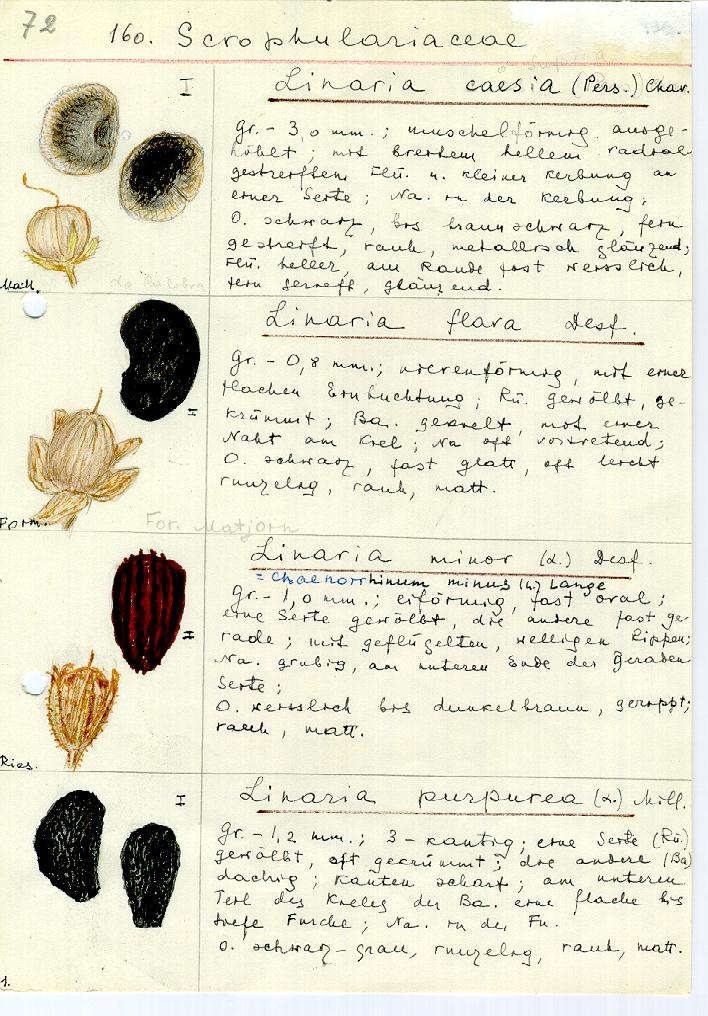 72
160. Scrophulariaceae
I
Linaria caesia (Pers.) Chav.
Gr. - 3,0 mm.; muschelförmig ausge-
höhlt; mit breitem hellem radial
gestreiftem Flü. u. kleiner Kerbung an
einer Seite; Na. in der Kerbung;
O. schwarz, bis braunschwarz, fein
gestreift, rauh, metallisch glänzend;
Flü. heller, am Rande fast weisslich,
fein gereift, glänzend.
Mall. La Calobra
Linaria flava Desf.
I
Gr. - 0,8 mm.; nierenförmig, mit einer
flachen Einbuchtung; Rü. gewölbt, ge-
krümmt; Ba. gekielt, mit einer
Naht am Kiel; Na oft vortretend;
O. schwarz, fast glatt, oft leicht
runzelig, rauh, matt.
Form. For. Matjorn
Linaria minor (L.) Desf.
= Chaenorrhinum minus (L.) Lange
I
Gr. - 1,0 mm.; eiförmig, fast oval;
eine Seite gewölbt, die andere fast ge-
rade; mit geflügelten, welligen Rippen;
Na. grubig, am unteren Ende der Geraden
Seite;
O. weisslich bis dunkelbraun, gerippt;
rauh, matt.
Ries.
I
Linaria purpurea (L.) Mill.
Gr. - 1,2 mm.; 3-kantig; eine Seite (Rü.)
gewölbt, oft gekrümmt; die andere (Ba)
dachig; Kanten scharf; am unteren
Teil des Kieles der Ba. eine flache bis
tiefe Furche; Na. in der Fu.
O. schwarz-grau, runzelig, rauh, matt.
1.